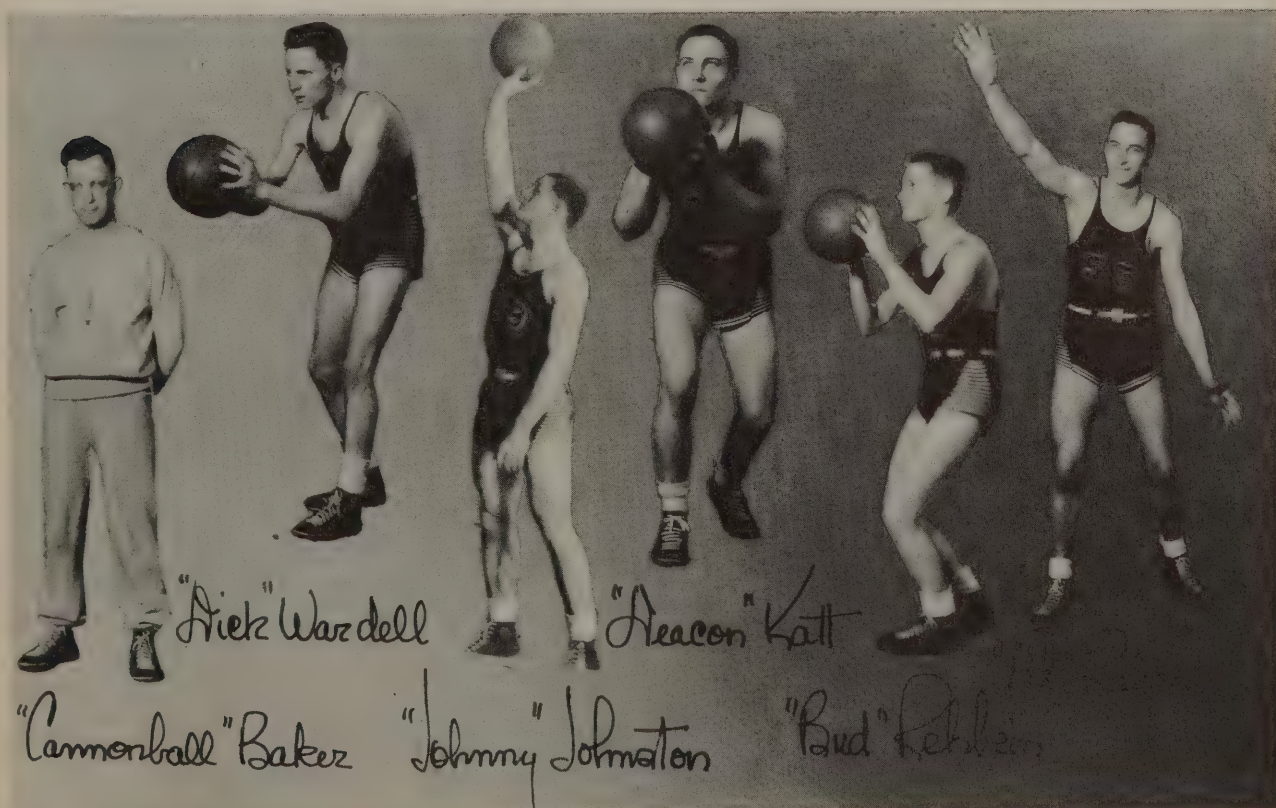 "Dick" Wardell
"Deacon" Katt
"Cannonball" Baker
"Johnny" Johnston
"Bud"